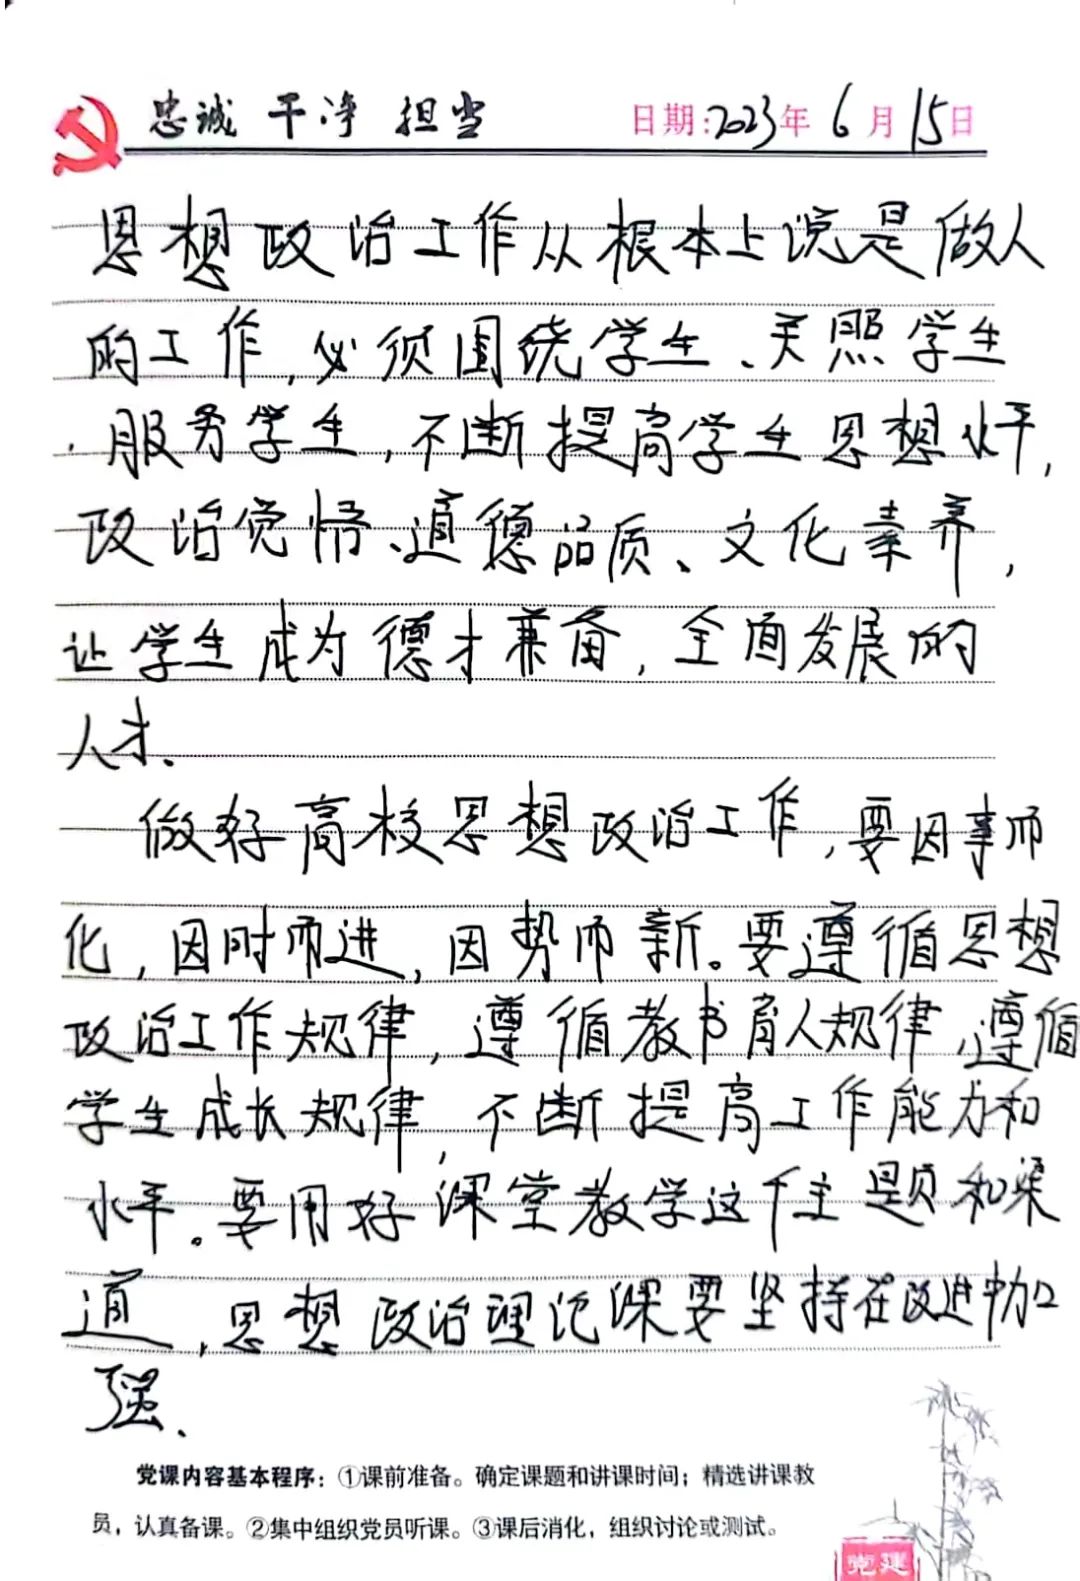 忠诚 干净 担当 日期:2023年6月15日
思想政治工作从根本上说是做人
的工作,必须围绕学生、关照学生
、服务学生,不断提高学生思想水平,
政治觉悟、道德品质、文化素养,
让学生成为德才兼备,全面发展的
人才、
做好高校思想政治工作,要因事而
化,因时而进,因势而新。要遵循思想
政治工作规律,遵循教书育人规律,遵循
学生成长规律,不断提高工作能力和
水平。要用好课堂教学这个主题和渠
道,思想政治理论课要坚持在改进中加
强、
党课内容基本程序:①课前准备。确定课题和讲课时间;精选讲课教
员,认真备课。②集中组织党员听课。③课后消化,组织讨论或测试。
党建